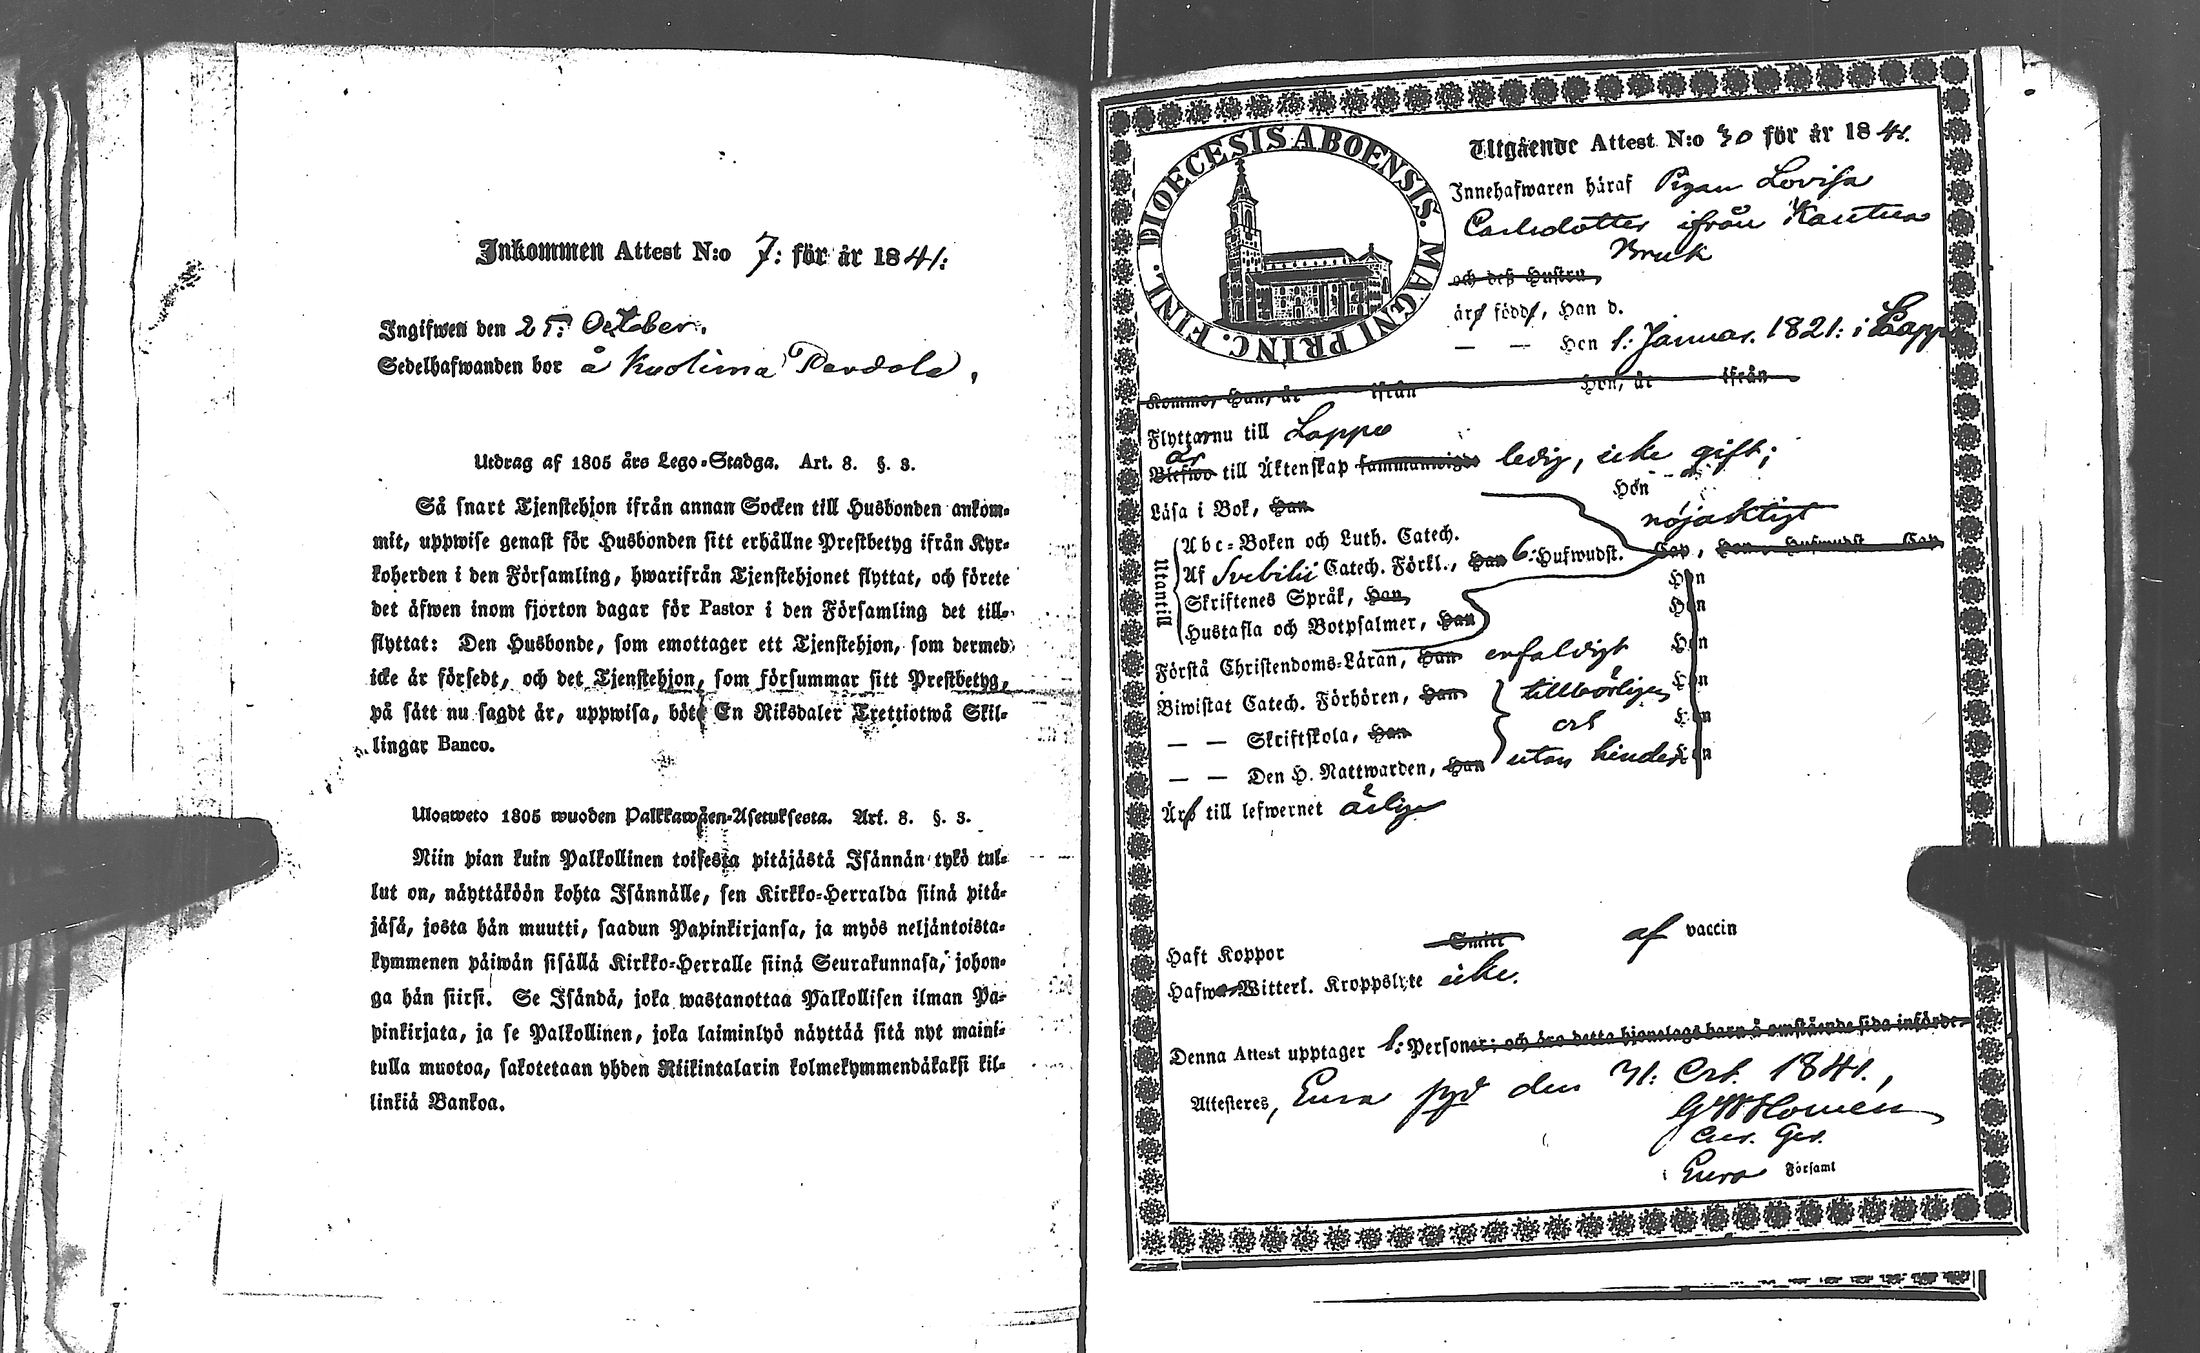 Inkommen Attest N:o 7: för år 1841:
Ingifwen den 25: October.
Sedelhafwanden bor å Kuolima Perdola,
Utdrag af 1805 års Lego-Stadga. Art. 8. §. 3.
Så snart Tjenstehjon ifrån annan Socken till Husbonden ankom-
mit, uppwise genast för Husbonden sitt erhållne Prestbetyg ifrån Kyr-
koherden i den Församling, hwarifrån Tjenstehjonet flyttat, och förete
det äfwen inom fjorton dagar för Pastor i den Församling det till-
flyttat: Den Husbonde, som emottager ett Tjenstehjon, som dermed
icke är försedt, och det Tjenstehjon, som försummar sitt Prestbetyg,
på sätt nu sagdt är, uppwisa, böte En Riksdaler Trettiotwå Skil-
lingar Banco.
Ulosweto 1805 wuoden Palkkawäen-Asetuksesta. Art. 8. §. 3.
Niin pian kuin Palkollinen toisesta pitäjästä Isännän tykö tul-
lut on, näyttäköön kohta Isännälle, sen Kirkko-Herralda siinä pitä-
jäsä, josta hän muutti, saadun Papinkirjansa, ja myös neljäntoista-
kymmenen päiwän sisällä Kirkko-Herralle siinä Seurakunnasa, johon-
ga hän siirsi. Se Isändä, joka wastanottaa Palkollisen ilman Pa-
pinkirjata, ja se Palkollinen, joka laiminlyö näyttää sitä nyt maini-
tulla muotoa, sakotetaan yhden Riikintalarin kolmekymmendäkaksi kil-
linkiä Bankoa.
DIOECESIS ABOENSIS. MAGNI PRINC. FINL.
Utgående Attest N:o 30 för år 1841.
Innehafwaren häraf Pigan Lovisa
Carlsdotter ifrån Kautua
Bruk
och deß Hustru,
är född, Han d.
— — Hon 1: Januar. 1821: i Lappo
Kommo, Han, år ifrån Hon, år ifrån
Flyttar nu till Lappo
är
Blefwo till Äktenskap sammanwigde ledig, icke gift;
Hon
Läsa i Bok, Han
nöjaktigt
Utantill
Abc-Boken och Luth. Catech.
Af Svebilii Catech. Förkl., Han 6: Hufwudst. Cap, Hon, Hufwudst. Cap
Hon
Skriftenes Språk, Han,
Hon
Hustafla och Botpsalmer, Han
Hon
Förstå Christendoms-Läran, Han enfaldigt
Hon
Biwistat Catech. Förhören, Han tillbörligen
Hon
— — Skriftskola, Han och
Hon
— — Den H. Nattwarden, Han utan hinder
Är till lefwernet ärlig
Haft Koppor Smitt af vaccin
Hafwa Witterl. Kroppslyte icke.
Denna Attest upptager 1: Personer; och äro detta hjonelags barn å omstående sida införde.
Attesteres, Eura pgd den 31: Oct. 1841.,
G W Homén
Eura Församl